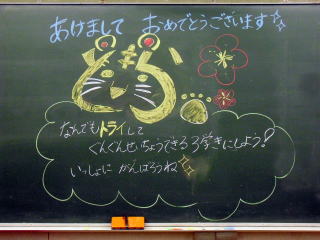 あけまして おめでとうございます
とら
なんでもトライして
ぐんぐんせいちょうできる3学きにしよう！
いっしょに がんばろうね